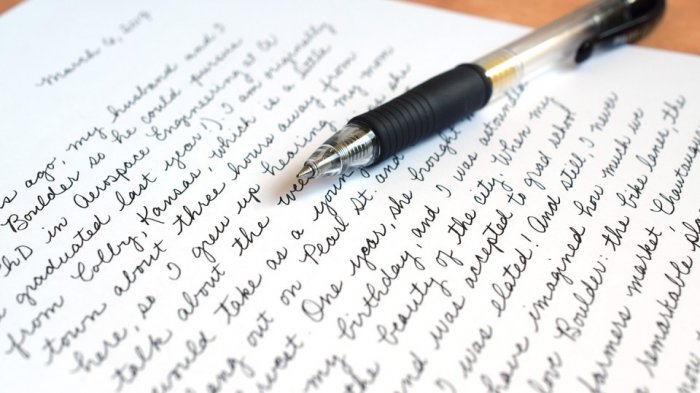 March 6, 2019
s ago, my husband and I
Boulder so he could pursue
PhD in Aerospace Engineering at CU
graduated last year!). I am originally
from Colby, Kansas, which is a little
town about three hours away from
here, so I grew up hearing my mom
talk about the she
would take as a young and
hang out on Pearl St. and
west. One year, she brought m
my birthday, and I was astounde
the beauty of the city. When my
and was accepted to grad school
I was elated! And still, I never
have imagined how much we
love Boulder: the bike lanes, the
farmers market, Chautauq
remarkable